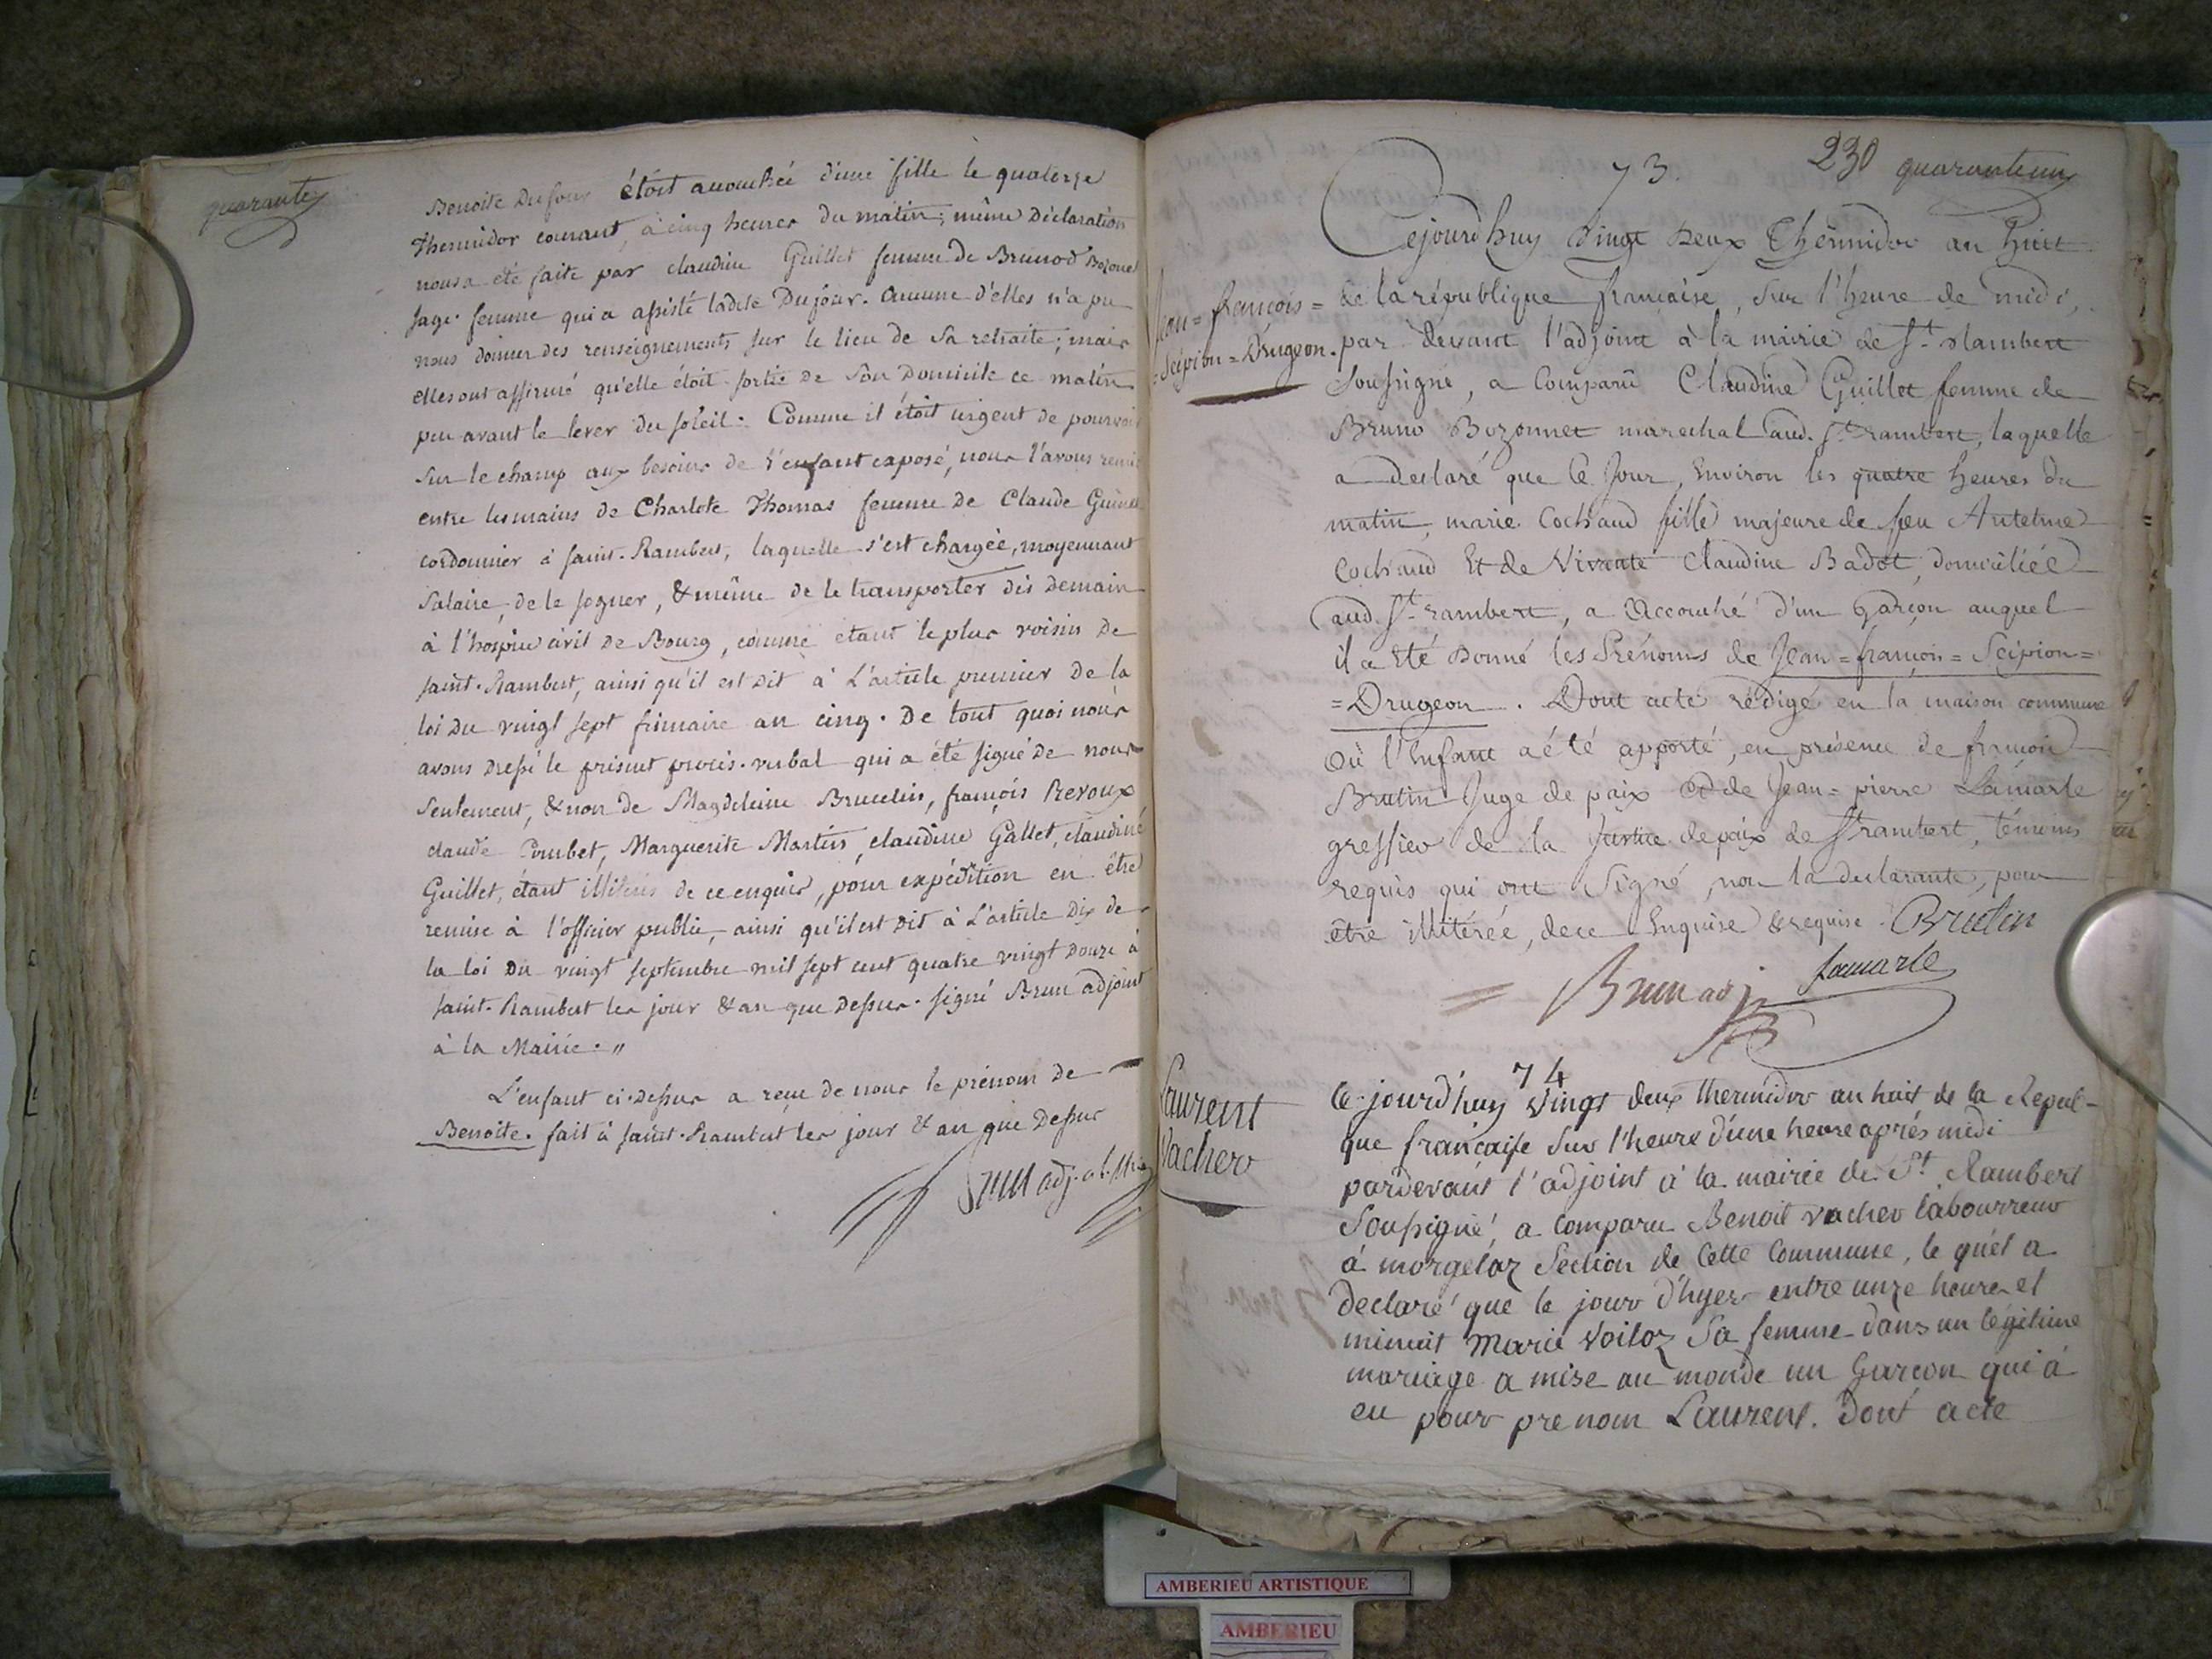 quarante
Benoite Dufour étoit accouchée d'une fille le quatorze
Thermidor courant, à cinq heures du matin; même déclaration
nous a été faite par claudine Guillet femme de Brunod Bozonet
sage-femme qui a assisté ladite Dufour. Aucune d'elles n'a pu
nous donner des renseignements sur le lieu de sa retraite; mais
elles ont affirmé qu'elle étoit sortie de son Domicile ce matin
peu avant le lever du soleil. Comme il étoit urgent de pourvoir
sur le champ aux besoins de l'enfant exposé, nous l'avons remis
entre les mains de Charlote Thomas femme de Claude
cordonnier à saint-Rambert, laquelle s'est chargée, moyennant
salaire, de le sogner, & même de le transporter dès demain
à l'hospice civil de Bourg, comme étant le plus voisin de
saint-Rambert, ainsi qu'il est dit à L'article premier de la
loi du vingt sept frimaire an cinq. De tout quoi nous
avons dressé le présent procès-verbal qui a été signé de nous
seulement, & non de Magdeleine Brucelin, françois Revoux
claude Combet, Marguerite Martin, claudine Gallet, claudine
Guillet, étant illitérés de ce enquis, pour expédition en être
remise à l'officier public, ainsi qu'il est dit à L'article Dix de
la loi du vingt septembre mil sept cent quatre vingt douze à
saint-Rambert les jour & an que dessus. signé Brun adjoint
à la Mairie. "
L'enfant ci-dessus a reçu de nous le prénom de
Benoite. fait à saint-Rambert les jour & an que dessus
Brun adj. a l. M.ie
73.
230 quarante un
Cejourd'huy vingt deux Thermidor an huit
Jean=françois=
=Scipion=Drugeon.
de la république française, sur l'heure de midi,
par devant l'adjoint à la mairie de St. rambert
soussigné, a comparu Claudine Guillot femme de
Bruno Bozonnet marechal aud. St. rambert, laquelle
a declaré que ce jour, environ les quatre heures du
matin, marie Cochaud fille majeure de feu Antelme
Cochaud Et de vivante Claudine Badot, domiciliée
aud. St. rambert, a accouché d'un garçon auquel
il a été donné les Prénoms de Jean=françois=Scipion=
=Drugeon. Dont acte rédigé en la maison commune
où l'Enfant a été apporté, en présence de françois
Brutin Juge de paix et de Jean=pierre Lamarle
greffier de la Justice de paix de St rambert, témoins
requis qui ont Signé, non la declarante, pour
être illitérée, de ce Enquise & requise. Brutin
Brun adj Lamarle
74
Laurent
Vacher
Ce jourd'huy vingt deux thermidor an huit de la Repul-
que française sur l'heure d'une heure aprés midi
pardevant l'adjoint à la mairie de St. Rambert
Soussigné, a comparu Benoit vacher labourreur
á morgelaz Section de cette Commune, le quel a
declaré que le jour d'hyer entre unze heures et
minuit Marie Voiloz Sa femme dans un légitime
mariage a mise au monde un Garçon qui á
eu pour prenom Laurent. Dont acte
AMBERIEU ARTISTIQUE
AMBERIEU